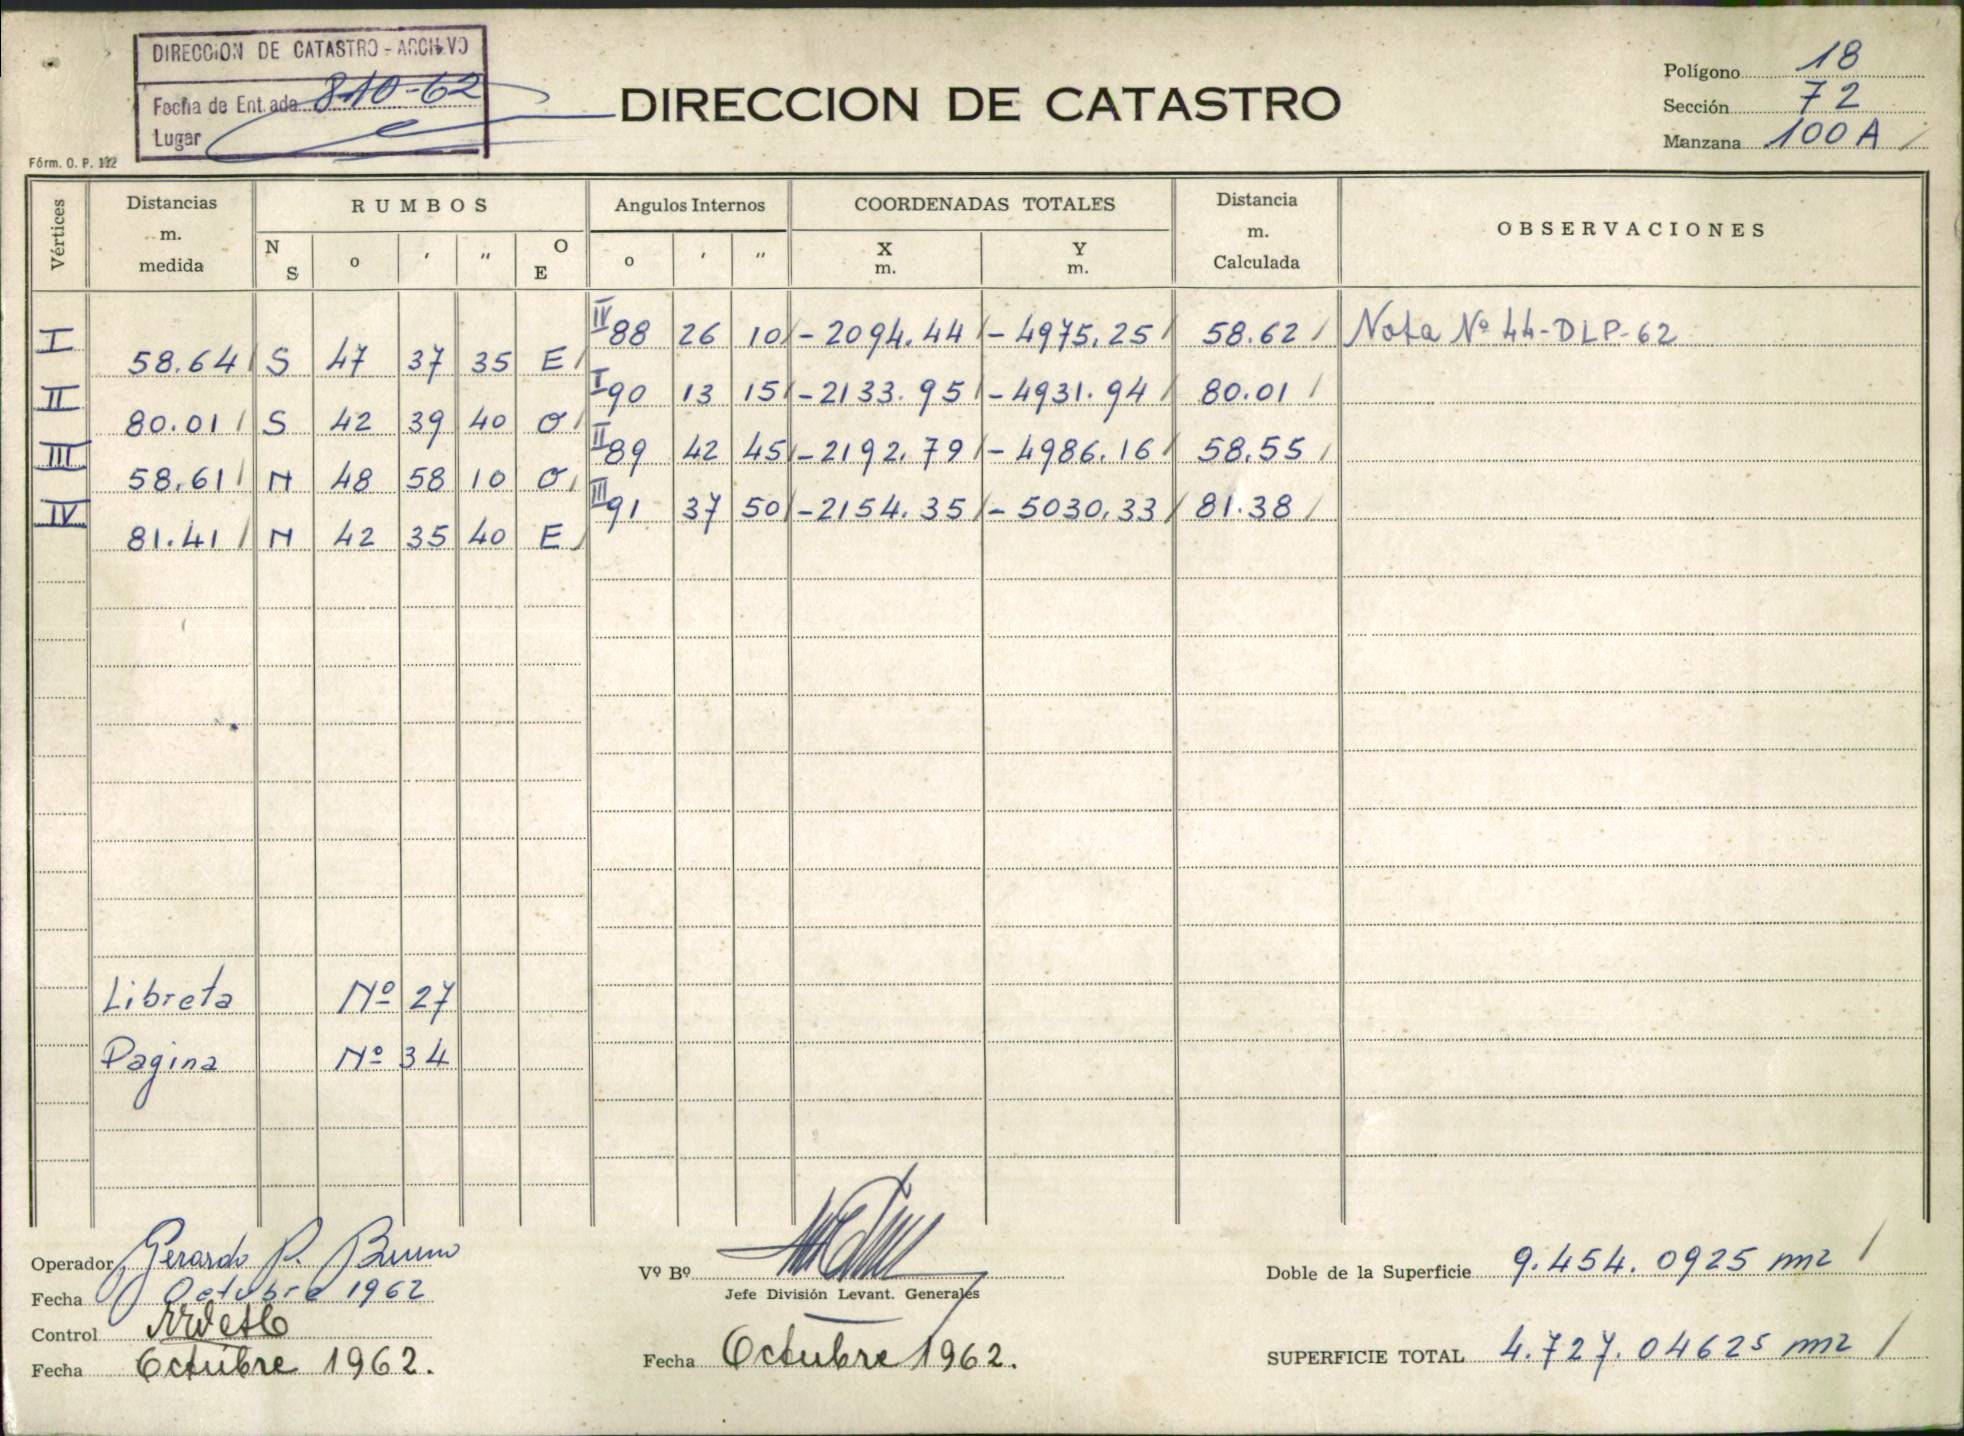 DIRECCION DE CATASTRO - ARCHIVO
Fecha de Entrada 8-10-62
Lugar
Fórm. O. P. 112
DIRECCION DE CATASTRO
Polígono 18
Sección 72
Manzana 100 A /
Vértices Distancias m. medida RUMBOS Angulos Internos COORDENADAS TOTALES Distancia m. Calculada OBSERVACIONES
N S o ' " O E o ' " X m. Y m.
I 58.64 / S 47 37 35 E / IV 88 26 10 / - 2094.44 / - 4975.25 / 58.62 / Nota Nº 44-DLP-62
II 80.01 / S 42 39 40 O / I 90 13 15 / - 2133.95 / - 4931.94 / 80.01 /
III 58.61 / N 48 58 10 O / II 89 42 45 / - 2192.79 / - 4986.16 / 58.55 /
IV 81.41 / N 42 35 40 E / III 91 37 50 / - 2154.35 / - 5030.33 / 81.38 /
Libreta Nº 27
Pagina Nº 34
Operador Gerardo P. Bruno
Fecha Octubre 1962
Control
Fecha Octubre 1962.
Vº Bº
Jefe División Levant. Generales
Fecha Octubre 1962.
Doble de la Superficie 9.454.0925 m2 /
SUPERFICIE TOTAL 4.727.04625 m2 /